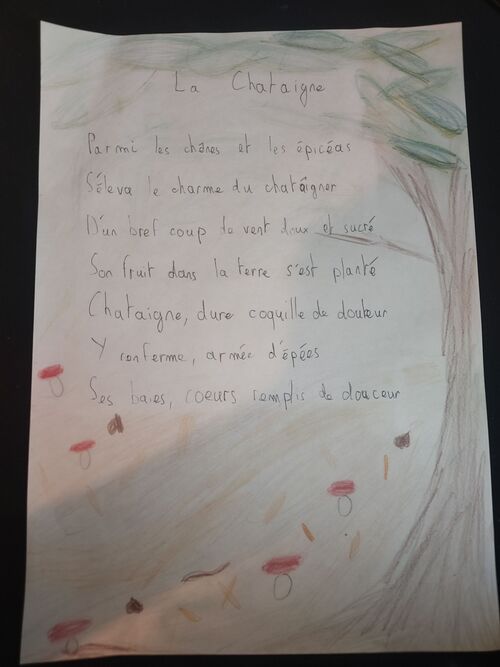 La Chataigne
Parmi les chênes et les épicéas
S'éleva le charme du chataîgner
D'un bref coup de vent doux et sucré
Son fruit dans la terre s'est planté
Chataigne, dure coquille de douleur
Y renferme, armée d'épées
Ses baies, coeurs remplis de douceur